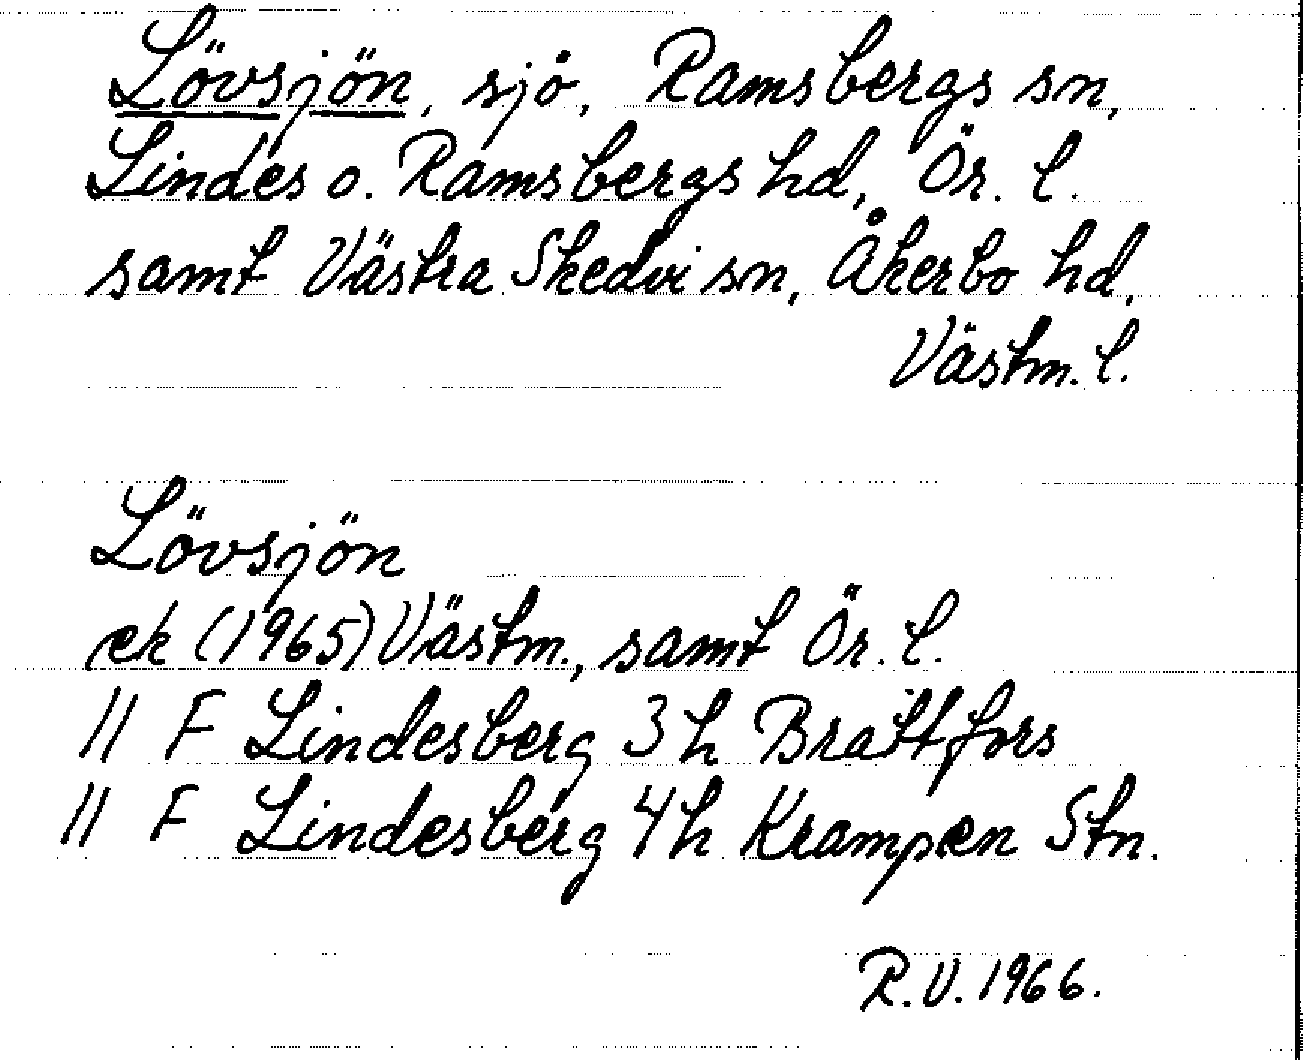 Lövsjön, sjö, Ramsbergs sn,
Lindes o. Ramsbergs hd, Ör. l.
samt Västra Skedvi sn, Åkerbo hd,
Västm. l.
Lövsjön
ek (1965) Västm., samt Ör. l.
11 F Lindesberg 3 h Brattfors
11 F Lindesberg 4 h Krampen Stn.
R.V. 1966.